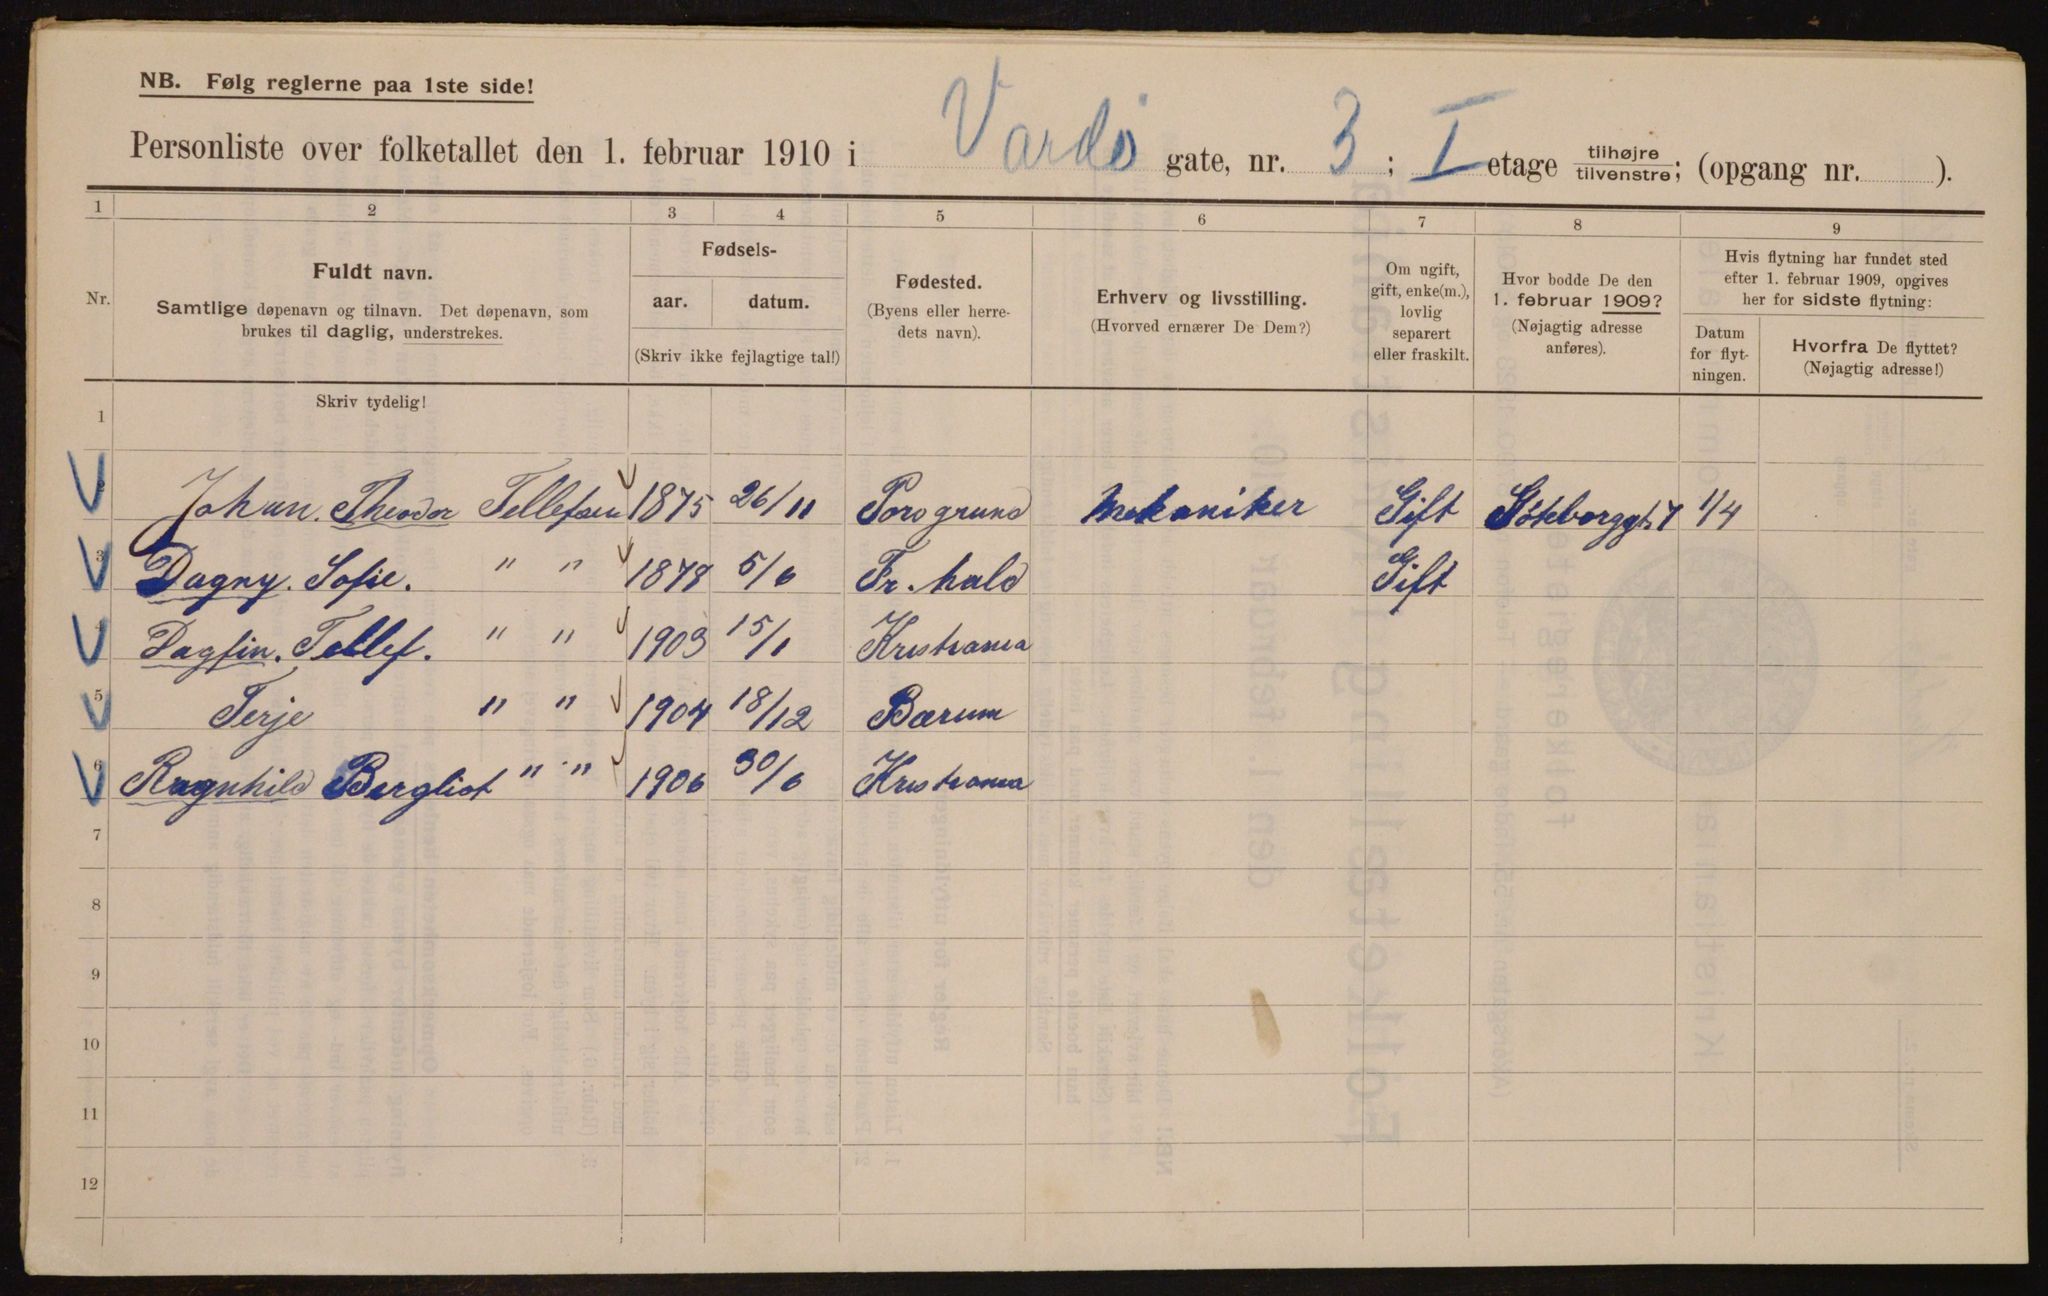 NB. Følg reglerne paa 1ste side!
Personliste over folketallet den 1. februar 1910 i Vardø gate, nr. 3; I etage tilhøjre tilvenstre; (opgang nr. ).
1 2 3 4 5 6 7 8 9
Nr.
Fuldt navn.
Samtlige døpenavn og tilnavn. Det døpenavn, som
brukes til daglig, understrekes.
Fødsels-
aar. datum.
(Skriv ikke fejlagtige tal!)
Fødested.
(Byens eller herre-
dets navn).
Erhverv og livsstilling.
(Hvorved ernærer De Dem?)
Om ugift,
gift, enke(m.),
lovlig
separert
eller fraskilt.
Hvor bodde De den
1. februar 1909?
(Nøjagtig adresse
anføres).
Hvis flytning har fundet sted
efter 1. februar 1909, opgives
her for sidste flytning:
Datum
for flyt-
ningen.
Hvorfra De flyttet?
(Nøjagtig adresse!)
Skriv tydelig!
1
2 Johan. Theodor Tellefsen 1875 26/11 Porsgrund Mekaniker Gift Göteborggt. 7 1/4
3 Dagny. Sofie. " " 1878 5/6 Fr. hald Gift
4 Dagfin. Tellef. " " 1903 15/1 Kristiania
5 Terje " " 1904 18/12 Bærum
6 Ragnhild Bergliot " " 1906 30/6 Kristiania
7
8
9
10
11
12